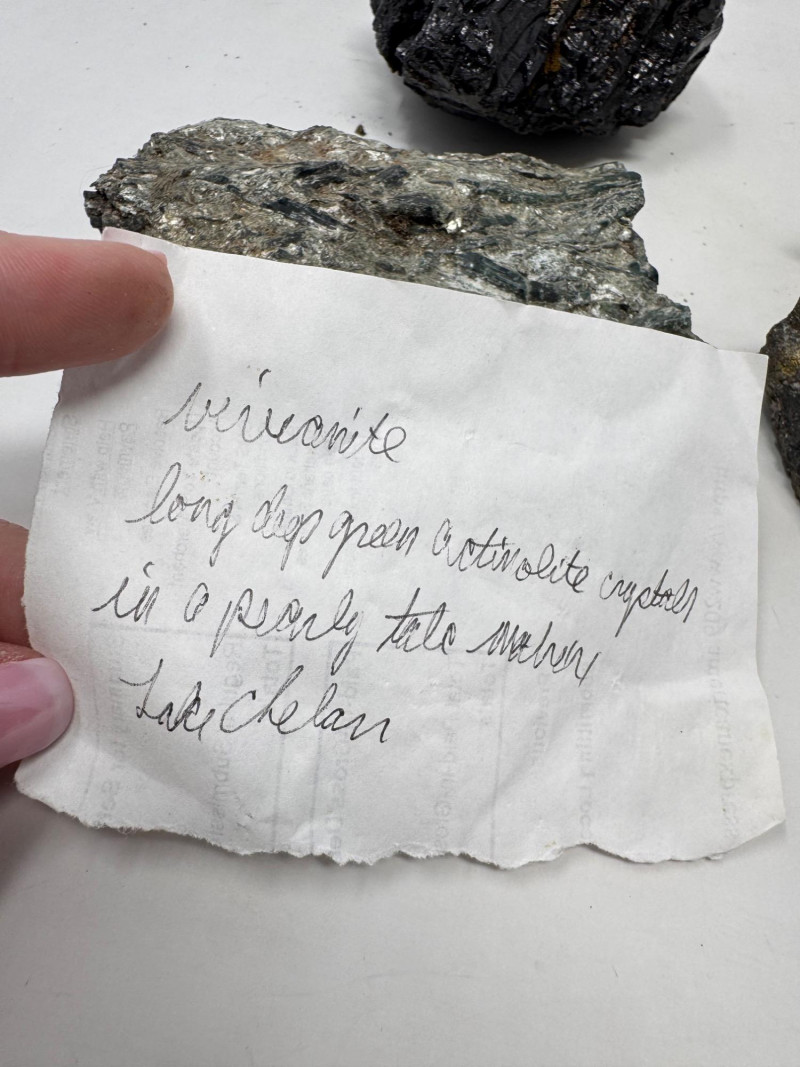 vivianite
long deep green actinolite crystals
in a pearly talc matrix
Lake Chelan